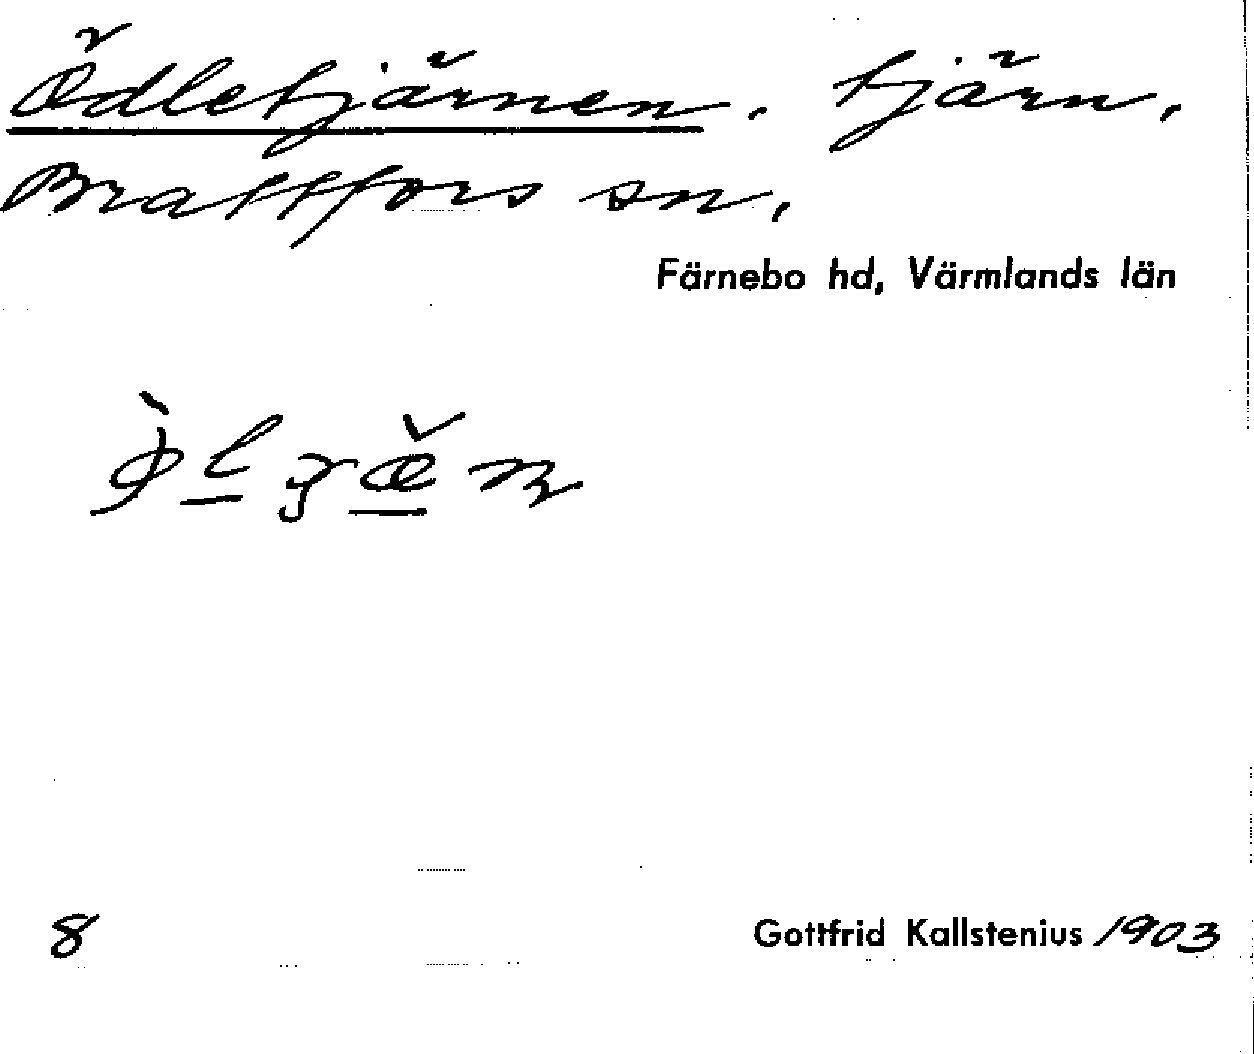 Ödletjärnen. tjärn,
Brattfors sn,
Färnebo hd, Värmlands län
8
Gottfrid Kallstenius 1903